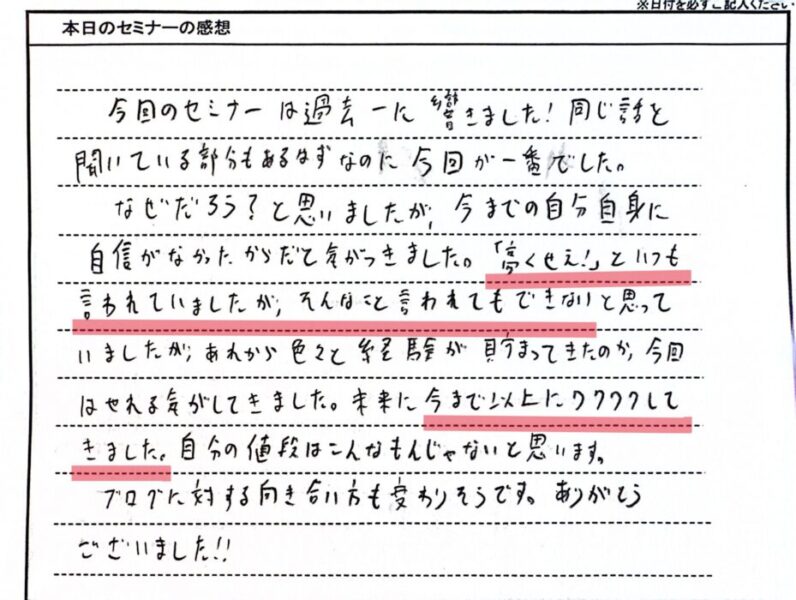 ※日付を必ずご記入ください
本日のセミナーの感想
今回のセミナーは過去一に響きました!同じ話を
聞いている部分もあるはずなのに今回が一番でした。
なぜだろう?と思いましたが、今までの自分自身に
自信がなかったからだと気がつきました。「高くせえ!」といつも
言われていましたが、そんなこと言われてもできないと思って
いましたが、あれから色々と経験が貯まってきたのか、今回
はやれる気がしてきました。未来に今まで以上にワクワクして
きました。自分の値段はこんなもんじゃないと思います。
ブログに対する向き合い方も変わりそうです。ありがとう
ございました!!